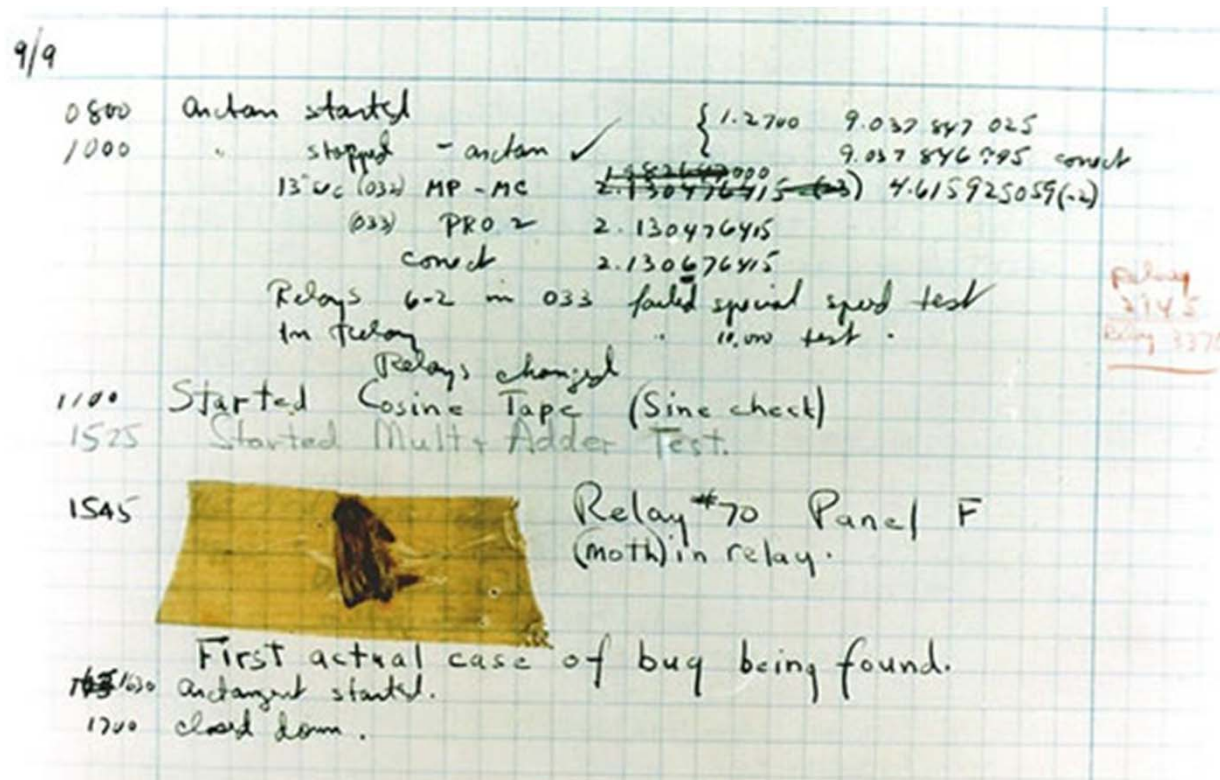 9/9
0800 arctan started { 1.2700 9.037 847 025
1000 " stopped - arctan ✓ 9.037 846 995 correct
13 (032) MP - MC 2.130476415 4.615925059(-2)
(033) PRO 2 2.130476415
correct 2.130676415
Relays 6-2 in 033 failed special speed test
In Relay " 10,000 test .
Relays changed
Relay
Relay 3370
1100 Started Cosine Tape (Sine check)
1525 Started Mult + Adder Test.
1545 Relay #70 Panel F
(moth) in relay.
First actual case of bug being found.
1630 arctangent started.
1700 closed down .